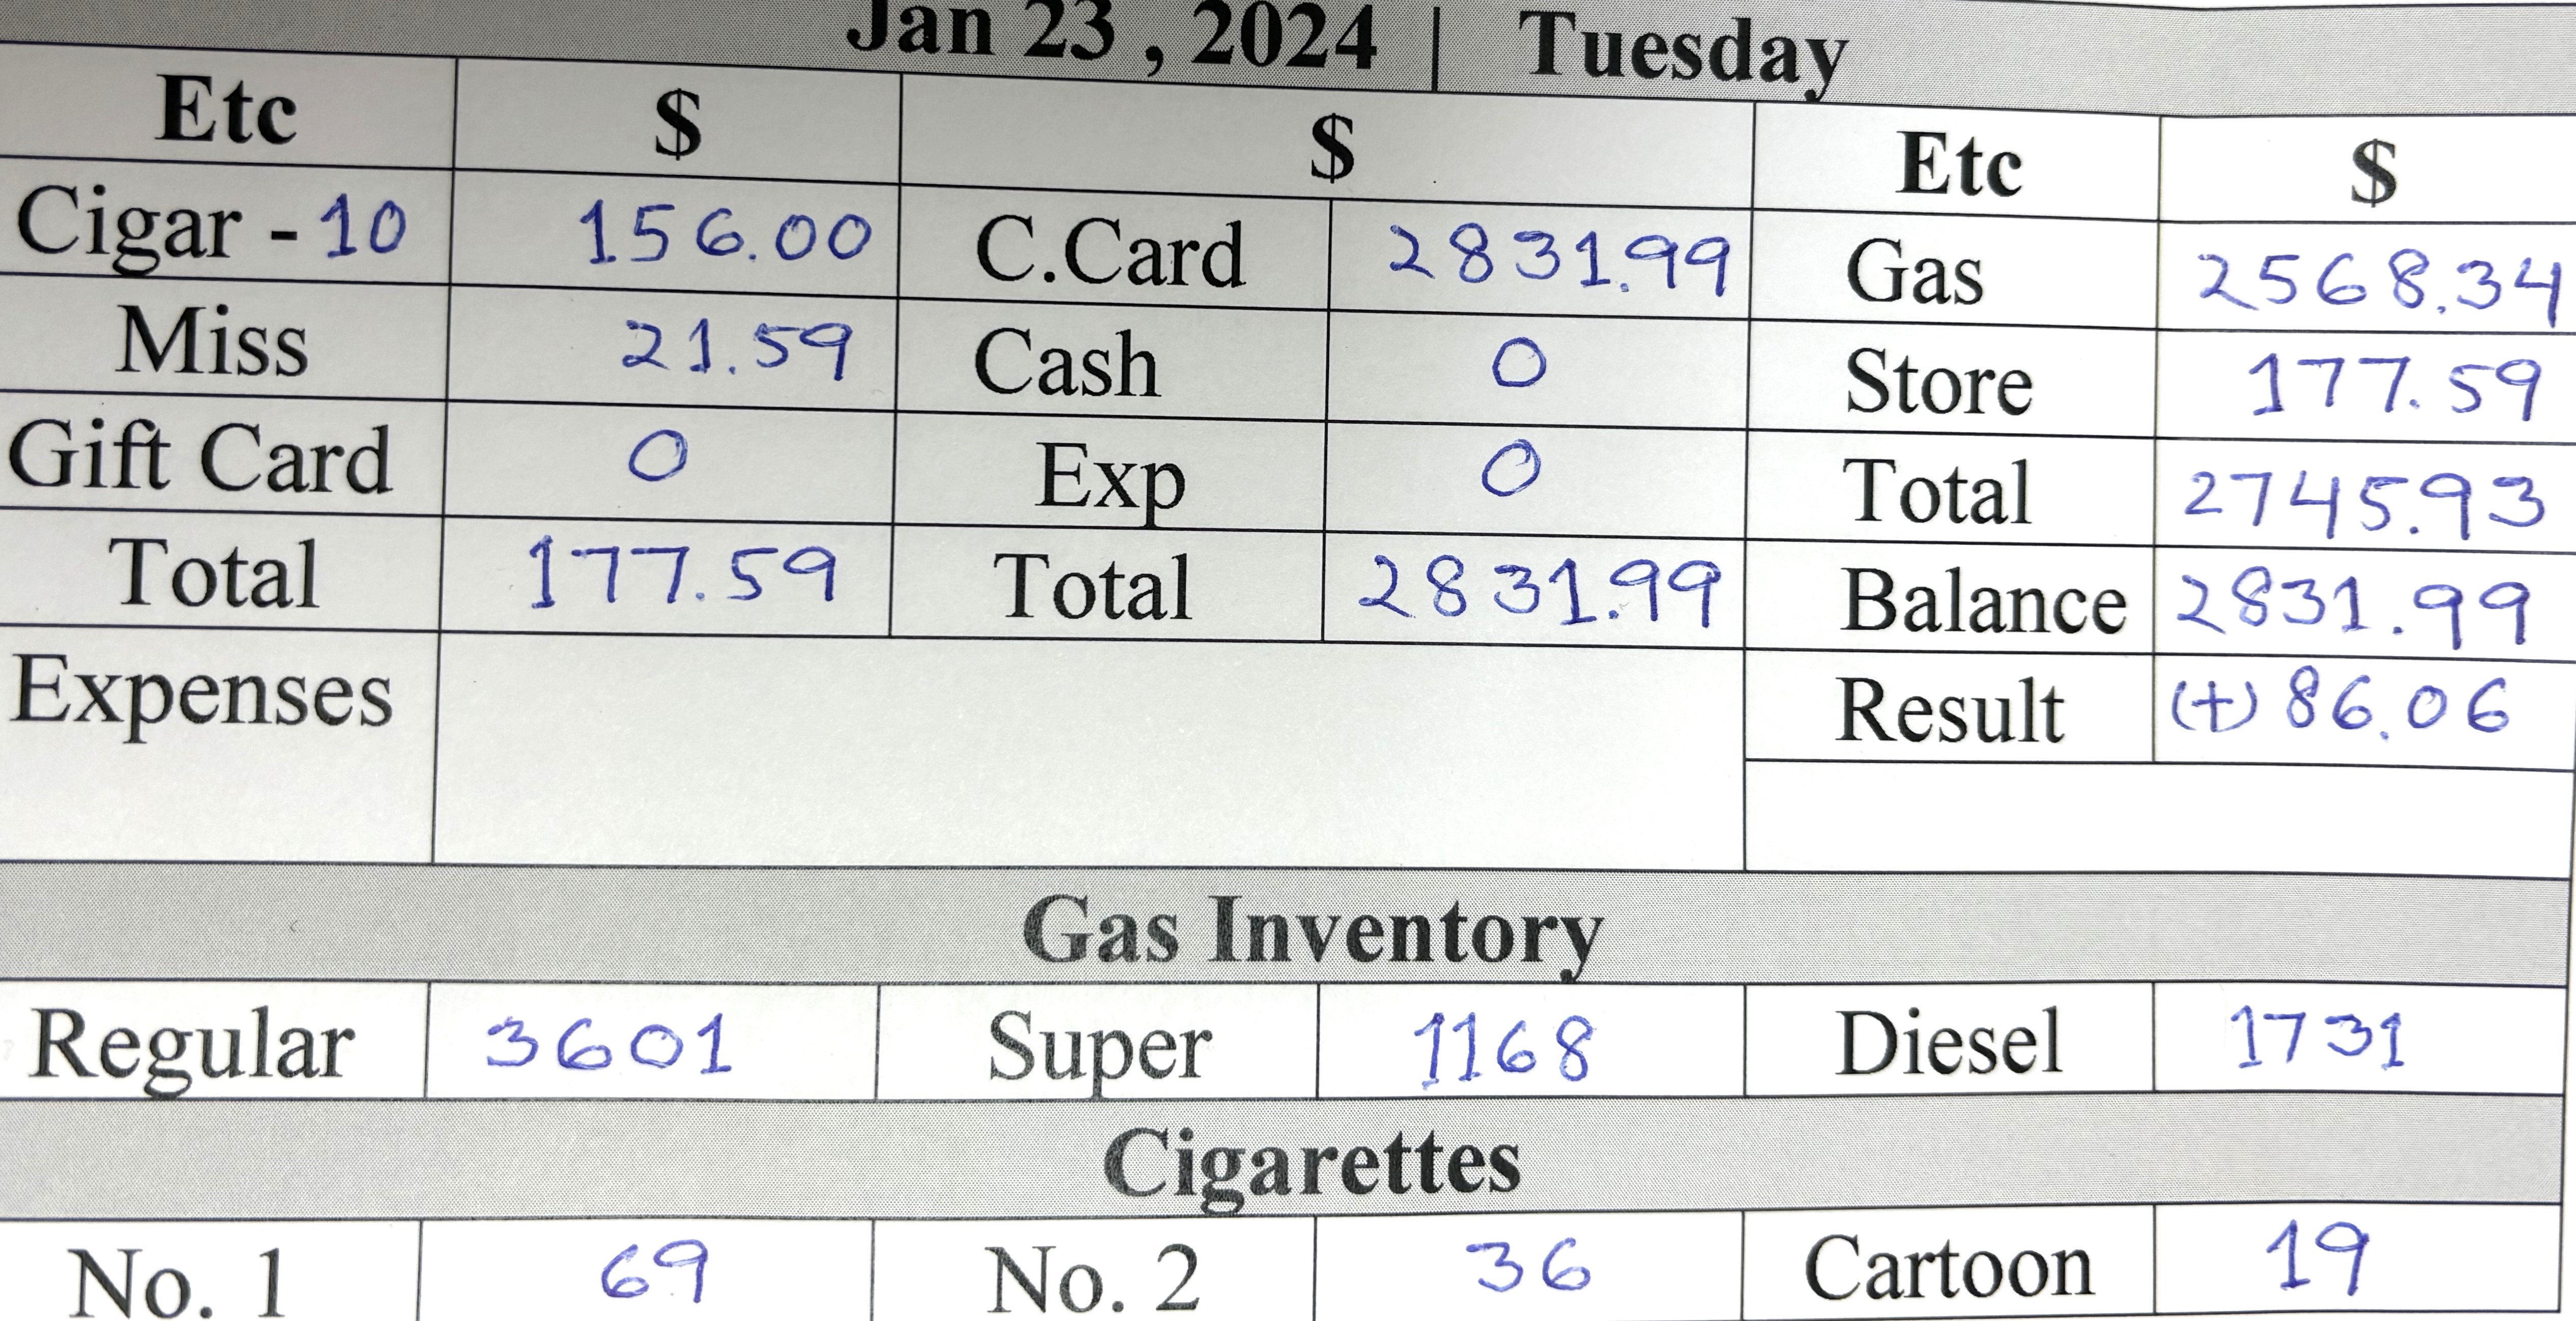 Jan 23 , 2024 | Tuesday
Etc $ $ Etc $
Cigar - 10 156.00 C.Card 2831.99 Gas 2568.34
Miss 21.59 Cash 0 Store 177.59
Gift Card 0 Exp 0 Total 2745.93
Total 177.59 Total 2831.99 Balance 2831.99
Expenses Result (+) 86.06
Gas Inventory
Regular 3601 Super 1168 Diesel 1731
Cigarettes
No. 1 69 No. 2 36 Cartoon 19